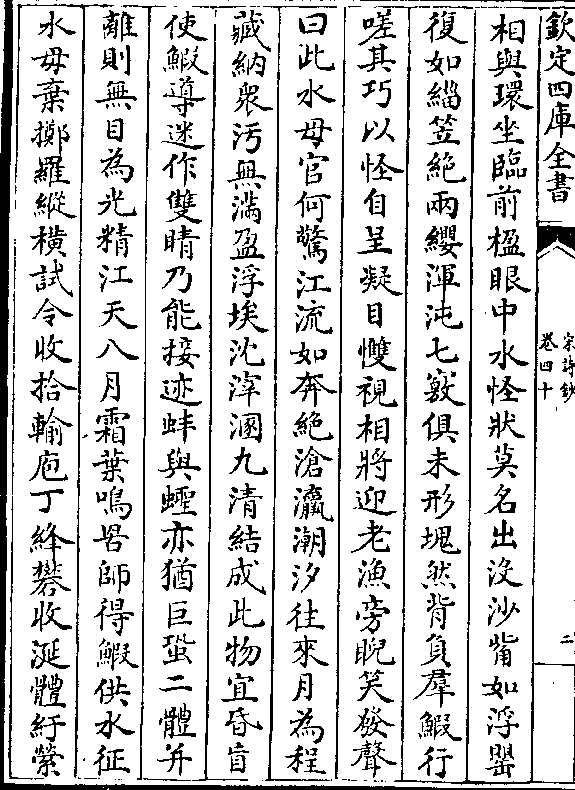 欽定四庫全書
宋詩鈔
卷四十
二
相與環坐臨前楹眼中水怪狀莫名出沒沙觜如浮罌
復如緇笠絶兩纓渾沌七竅俱未形塊然背負羣鰕行
嗟其巧以怪自呈凝目雙視相將迎老漁旁睨笑發聲
曰此水母官何驚江流如奔絶滄瀛潮汐往來月為程
藏納衆汚無滿盈浮埃沈滓溷九清結成此物宜昏盲
使鰕導迷作雙睛乃能接迹蚌與蟶亦猶巨蛩二體并
離則無目為光精江天八月霜葉鳴罟師得鰕供水征
水母棄擲羅縱橫試令收拾輸庖丁絳礬收涎體紆縈